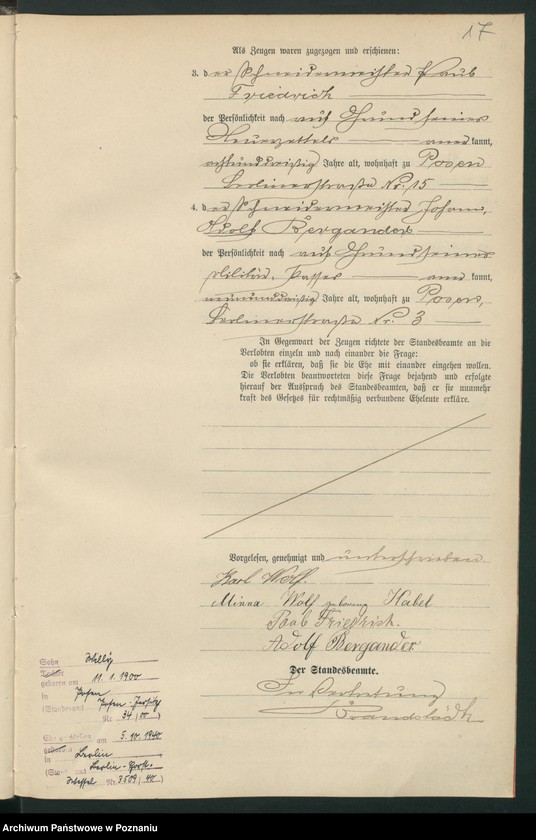 17
Als Zeugen waren zugezogen und erschienen:
3. der Schneidermeister Paul
Friedrich
der Persönlichkeit nach auf Grund seines
Steuerzettels anerkannt,
achtunddreißig Jahre alt, wohnhaft zu Posen
Berlinerstraße Nr. 15
4. der Schneidermeister Johann,
Adolf Bergander
der Persönlichkeit nach auf Grund seines
Militär-Passes anerkannt,
neununddreißig Jahre alt, wohnhaft zu Posen,
Berlinerstraße Nr. 3
In Gegenwart der Zeugen richtete der Standesbeamte an die
Verlobten einzeln und nach einander die Frage:
ob sie erklären, daß sie die Ehe mit einander eingehen wollen.
Die Verlobten beantworteten diese Frage bejahend und erfolgte
hierauf der Ausspruch des Standesbeamten, daß er sie nunmehr
kraft des Gesetzes für rechtmäßig verbundene Eheleute erkläre.
Vorgelesen, genehmigt und unterschrieben
Karl Wolf.
Minna Wolf geborene Habel
Paul Friedrich.
Adolf Bergander.
Der Standesbeamte.
In Vertretung
Brandstädt
Sohn Willy
Tochter
geboren am 11.1.1900
in Posen
(Standesamt Posen-Jersitz
Nr. 34/00)
am 5.10.1940
in Berlin
Berlin-
Nr. 3509/40)
Archiwum Państwowe w Poznaniu